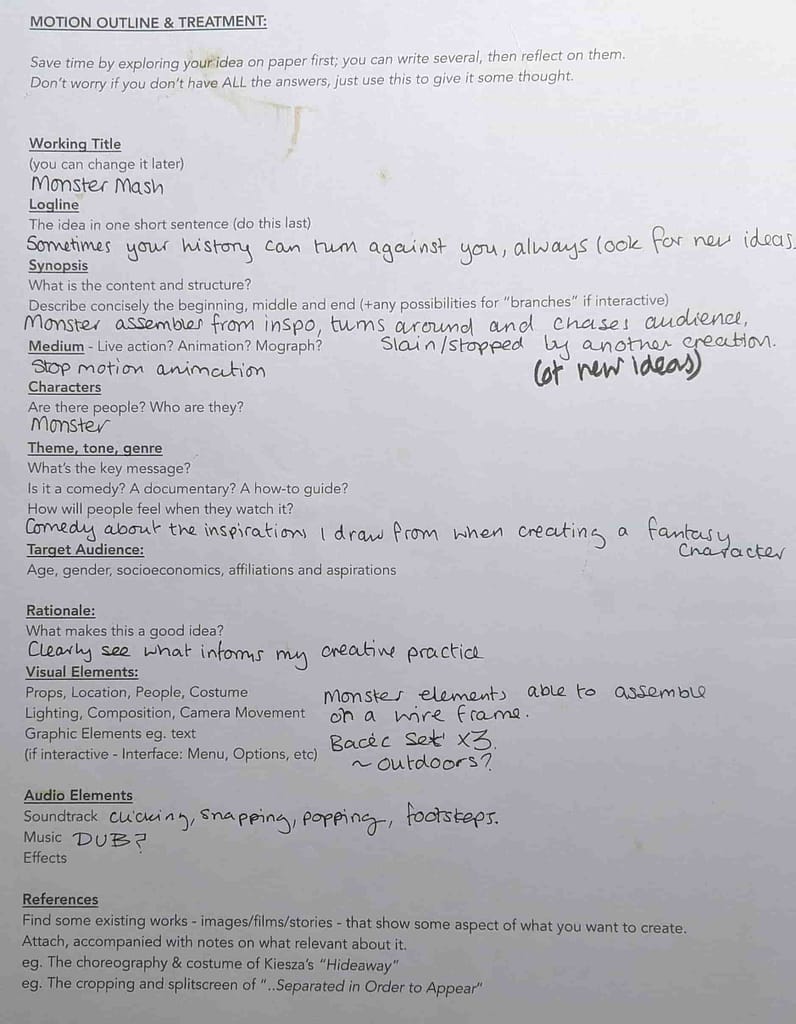 MOTION OUTLINE & TREATMENT:
Save time by exploring your idea on paper first; you can write several, then reflect on them.
Don't worry if you don't have ALL the answers, just use this to give it some thought.
Working Title
(you can change it later)
Monster Mash
Logline
The idea in one short sentence (do this last)
Sometimes your history can turn against you, always look for new ideas.
Synopsis
What is the content and structure?
Describe concisely the beginning, middle and end (+any possibilities for "branches" if interactive)
Monster assembles from inspo, turns around and chases audience,
Medium - Live action? Animation? Mograph? Slain/stopped by another creation.
Stop motion animation (of new ideas)
Characters
Are there people? Who are they?
Monster
Theme, tone, genre
What's the key message?
Is it a comedy? A documentary? A how-to guide?
How will people feel when they watch it?
Comedy about the inspirations I draw from when creating a fantasy
character
Target Audience:
Age, gender, socioeconomics, affiliations and aspirations
Rationale:
What makes this a good idea?
Clearly see what informs my creative practice
Visual Elements:
Props, Location, People, Costume Monster elements able to assemble
Lighting, Composition, Camera Movement on a wire frame.
Graphic Elements eg. text Set x3.
(if interactive - Interface: Menu, Options, etc) ~ outdoors?
Audio Elements
Soundtrack clicking, snapping, popping, footsteps.
Music DUB?
Effects
References
Find some existing works - images/films/stories - that show some aspect of what you want to create.
Attach, accompanied with notes on what relevant about it.
eg. The choreography & costume of Kiesza's "Hideaway"
eg. The cropping and splitscreen of "..Separated in Order to Appear"